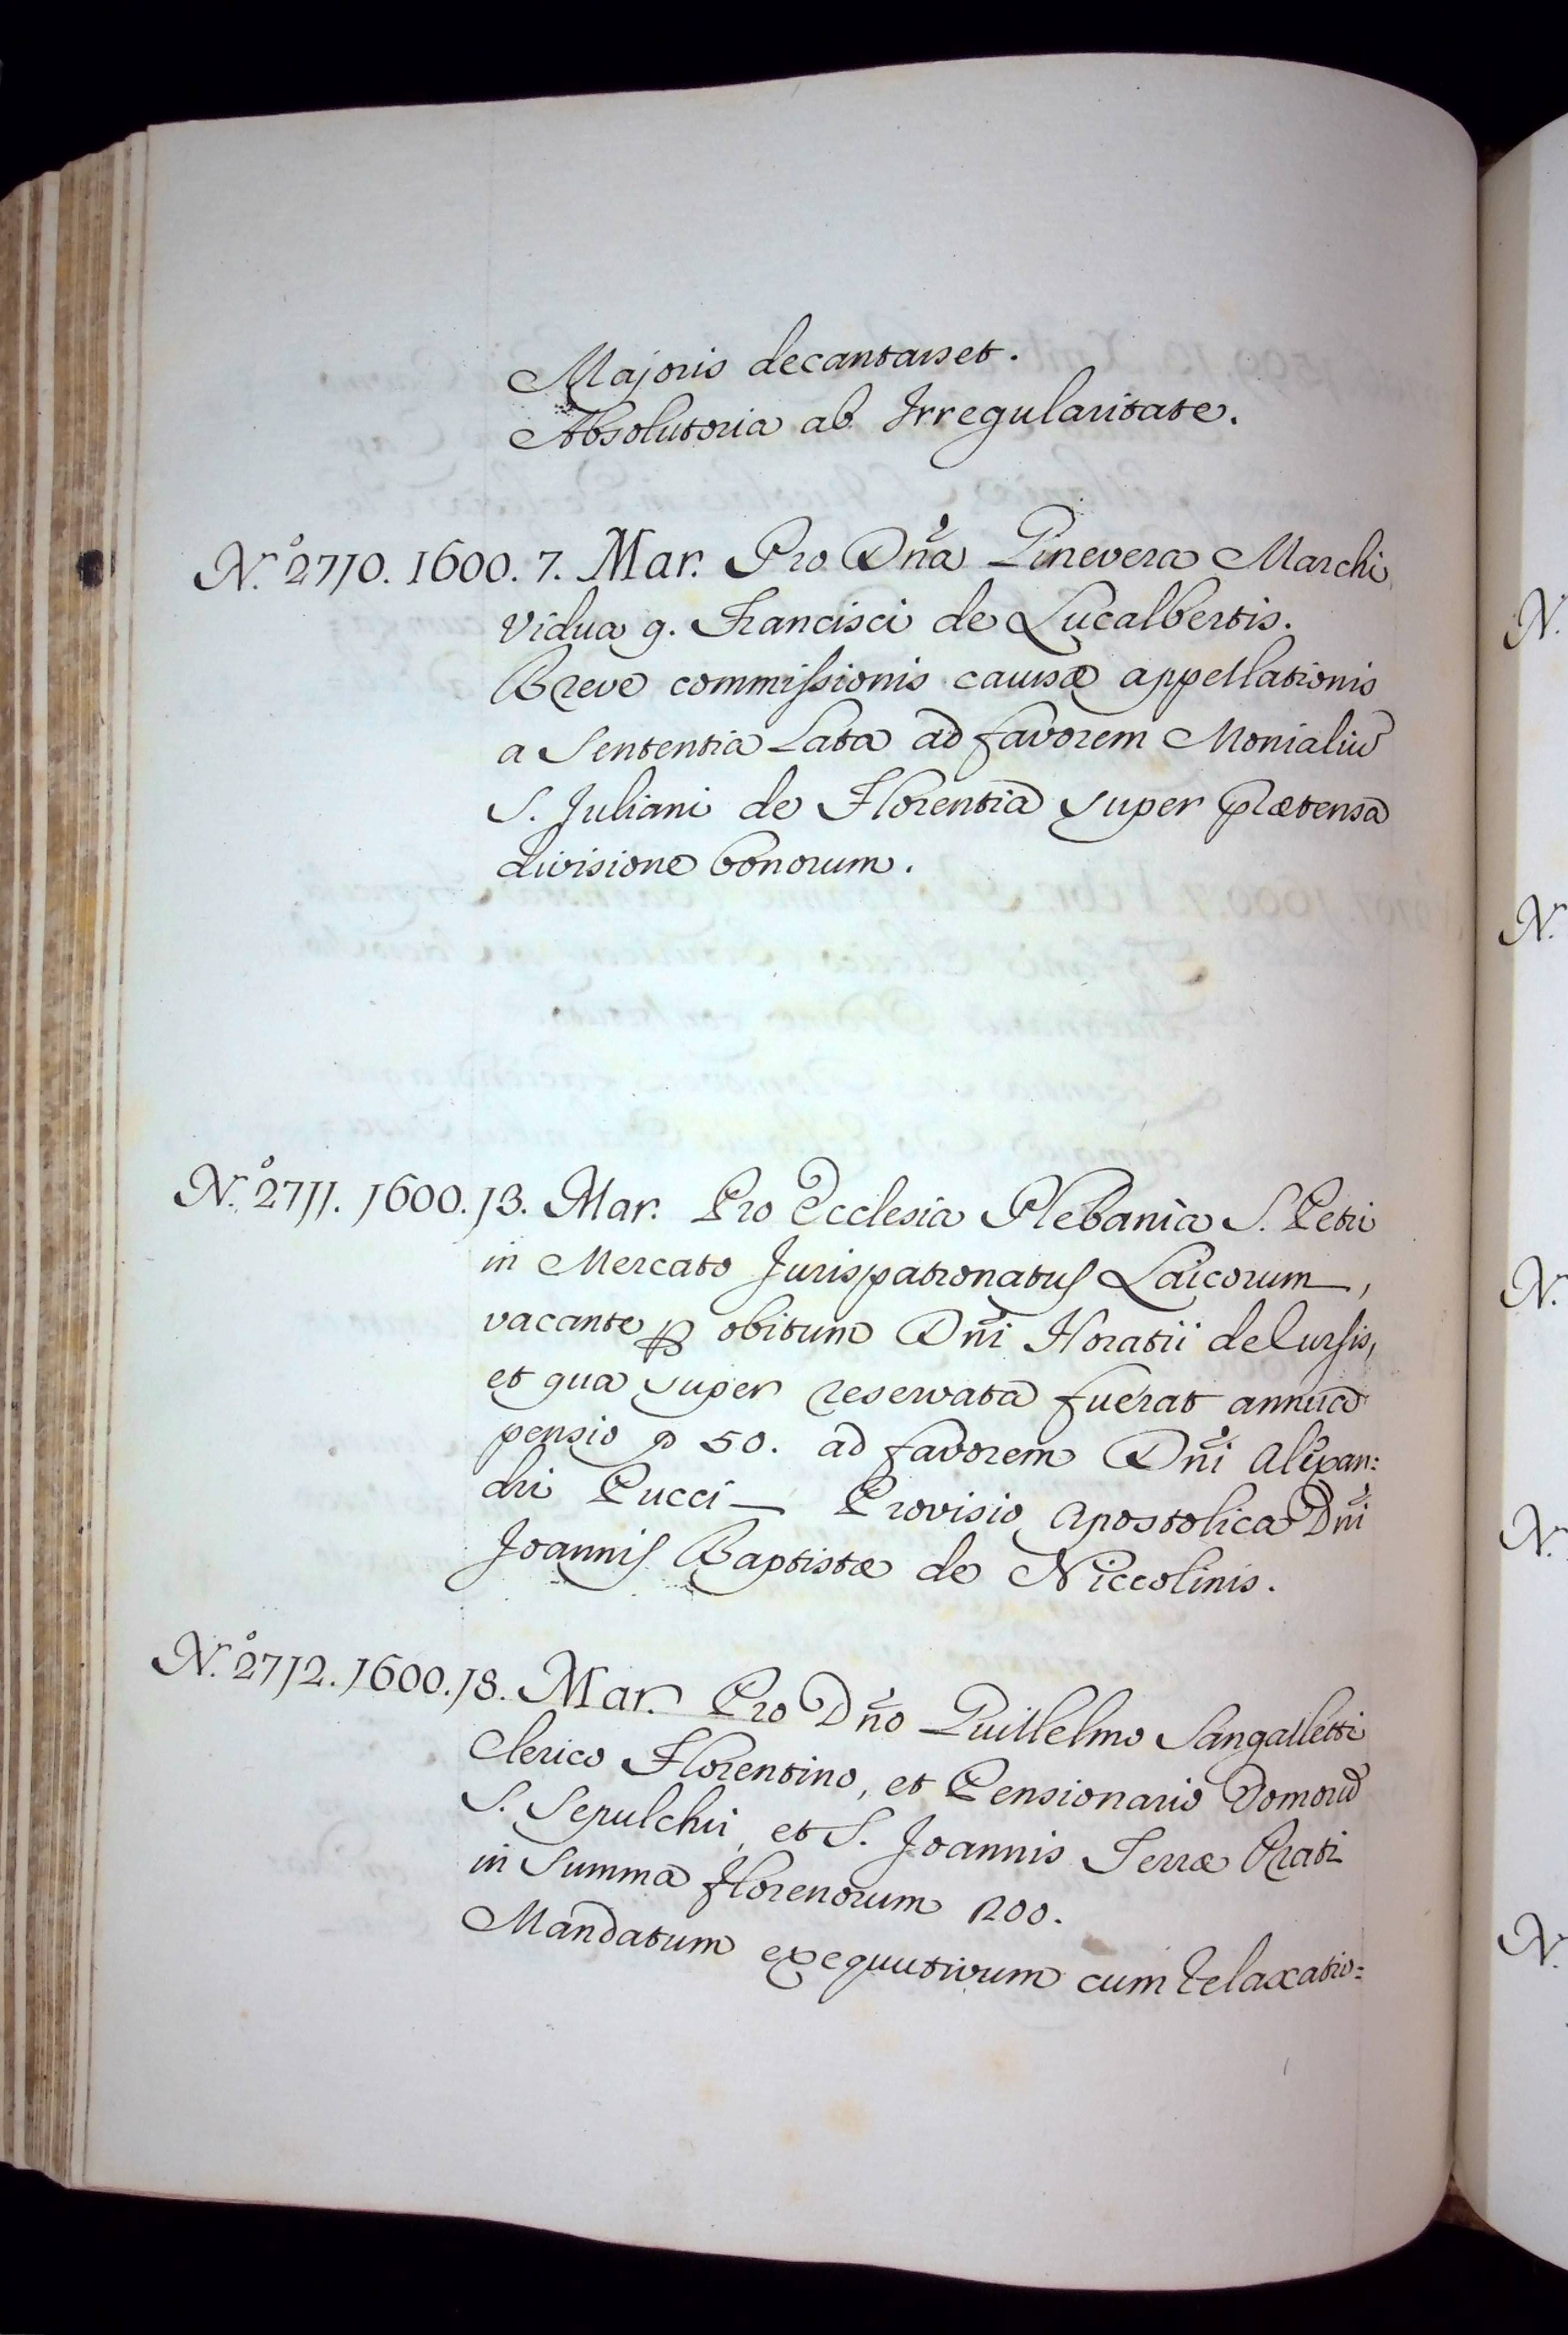 Majoris decantasset.
Absolutoria ab Irregularitate.
N.º 2710. 1600. 7. Mar. Pro Dñа Ginevera Marchi
Vidua q. Francisci de Lucalbertis.
Breve commissionis causæ appellationis
a Sententia Lata ad favorem Monialiū
S. Juliani de Florentia super prætensa
divisione bonorum.
N.º 2711. 1600. 13. Mar. Pro Ecclesia Plebania S. Petri
in Mercato Jurispatronatus Laicorum,
vacante obitum Dñi Horatii de Cursis,
et qua super reservata fuerat annua
pensio 50. ad favorem Dñi Alexan:
dri Pucci _ Provisio Apostolica Dñi
Joannis Baptistæ de Niccolinis.
N.º 2712. 1600. 18. Mar. Pro Dño Guillelmo Sangalletti
Clerico Florentino, et Pensionario Domorū
S. Sepulchri, et S. Joannis Terræ Prati
in Summa florenorum 200.
Mandatum exequutivum cum relaxatio:
N.
N.
N.
N.
N.